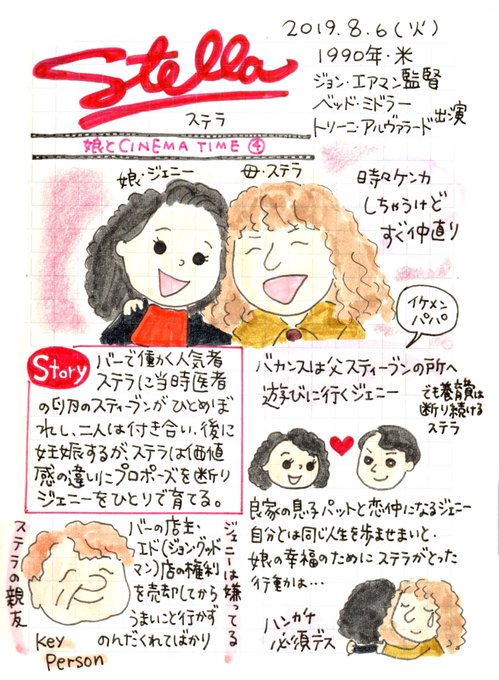 2019.8.6(火)
Stella
ステラ
1990年・米
ジョン・エアマン監督
ベッド・ミドラー
トリーニ・アルヴァラード出演
娘とCINEMA TIME ④
娘・ジェニー
母・ステラ
時々ケンカ
しちゃうけど
すぐ仲直り
イケメン
パパ
Story
バーで働く人気者
ステラに当時医者
の卵のスティーブンがひとめぼ
れし、二人は付き合い、後に
妊娠するが、ステラは価値
感の違いにプロポーズを断り
ジェニーをひとりで育てる。
バカンスは父スティーブンの所へ
遊びに行くジェニー
でも養育費は
断り続ける
ステラ
良家の息子パットと恋仲になるジェニー
自分とは同じ人生を歩ませまいと、
娘の幸福のためにステラがとった
行動は…
ハンカチ
必須デス
ステラの親友
Key
Person
バーの店主、
エド(ジョングッド
マン)店の権利
を売却してから
うまいこと行かず
のんだくれてばかり
ジェニーは嫌ってる